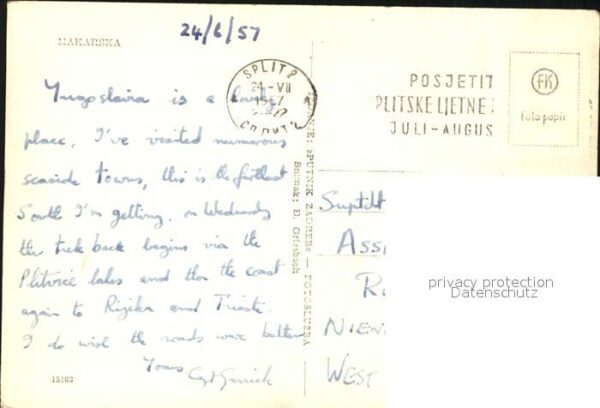 24/6/57
MAKARSKA
Yugoslavia is a lovely
place, I've visited numerous
seaside towns, this is the furthest
South I'm getting, on Wednesday
the trek back begins via the
Plitvice lakes and then the coast
again to Rijeka and Trieste.
I do wish the roads were better
Yours
15103
SPLIT 2
24-VII
POSJETIT
PLITSKE LJETNE
JULI-AUGUS
FK
Foto papir
»PUTNIK ZAGREB« — FOTOSLUŽBA
Snimak: D. Griesbach
Suptdt
ASS
R
NIEN
WEST
privacy protection
Datenschutz